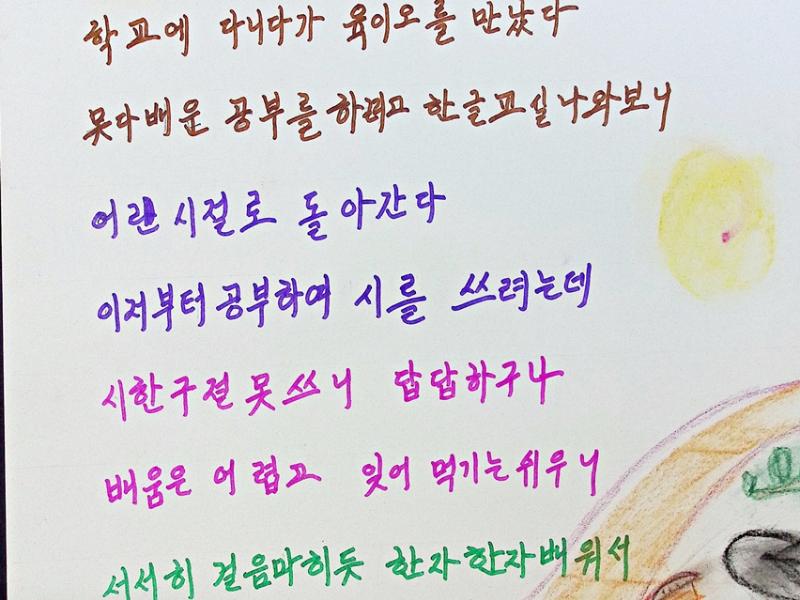 학교에 다니다가 육이오를 만났다
못다배운 공부를 하려고 한글교실 나와보니
어린시절로 돌아간다
이저부터 공부하여 시를 쓰려는데
시한구절 못쓰니 답답하구나
배움은 어렵고 잊어먹기는쉬우니
서서히 걸음마히듯 한자한자배워서